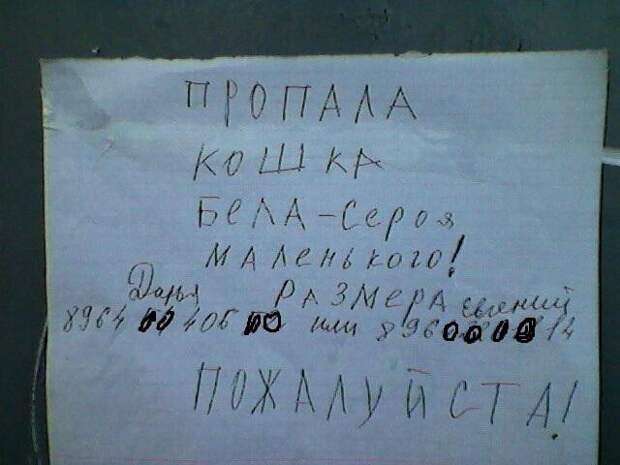 ПРОПАЛА
КОШКА
БЕЛА-Сероя
МАЛенького!
Дарья РАЗМЕРА Евгений
8964 406 или 896 14
ПОЖАЛУЙСТА!